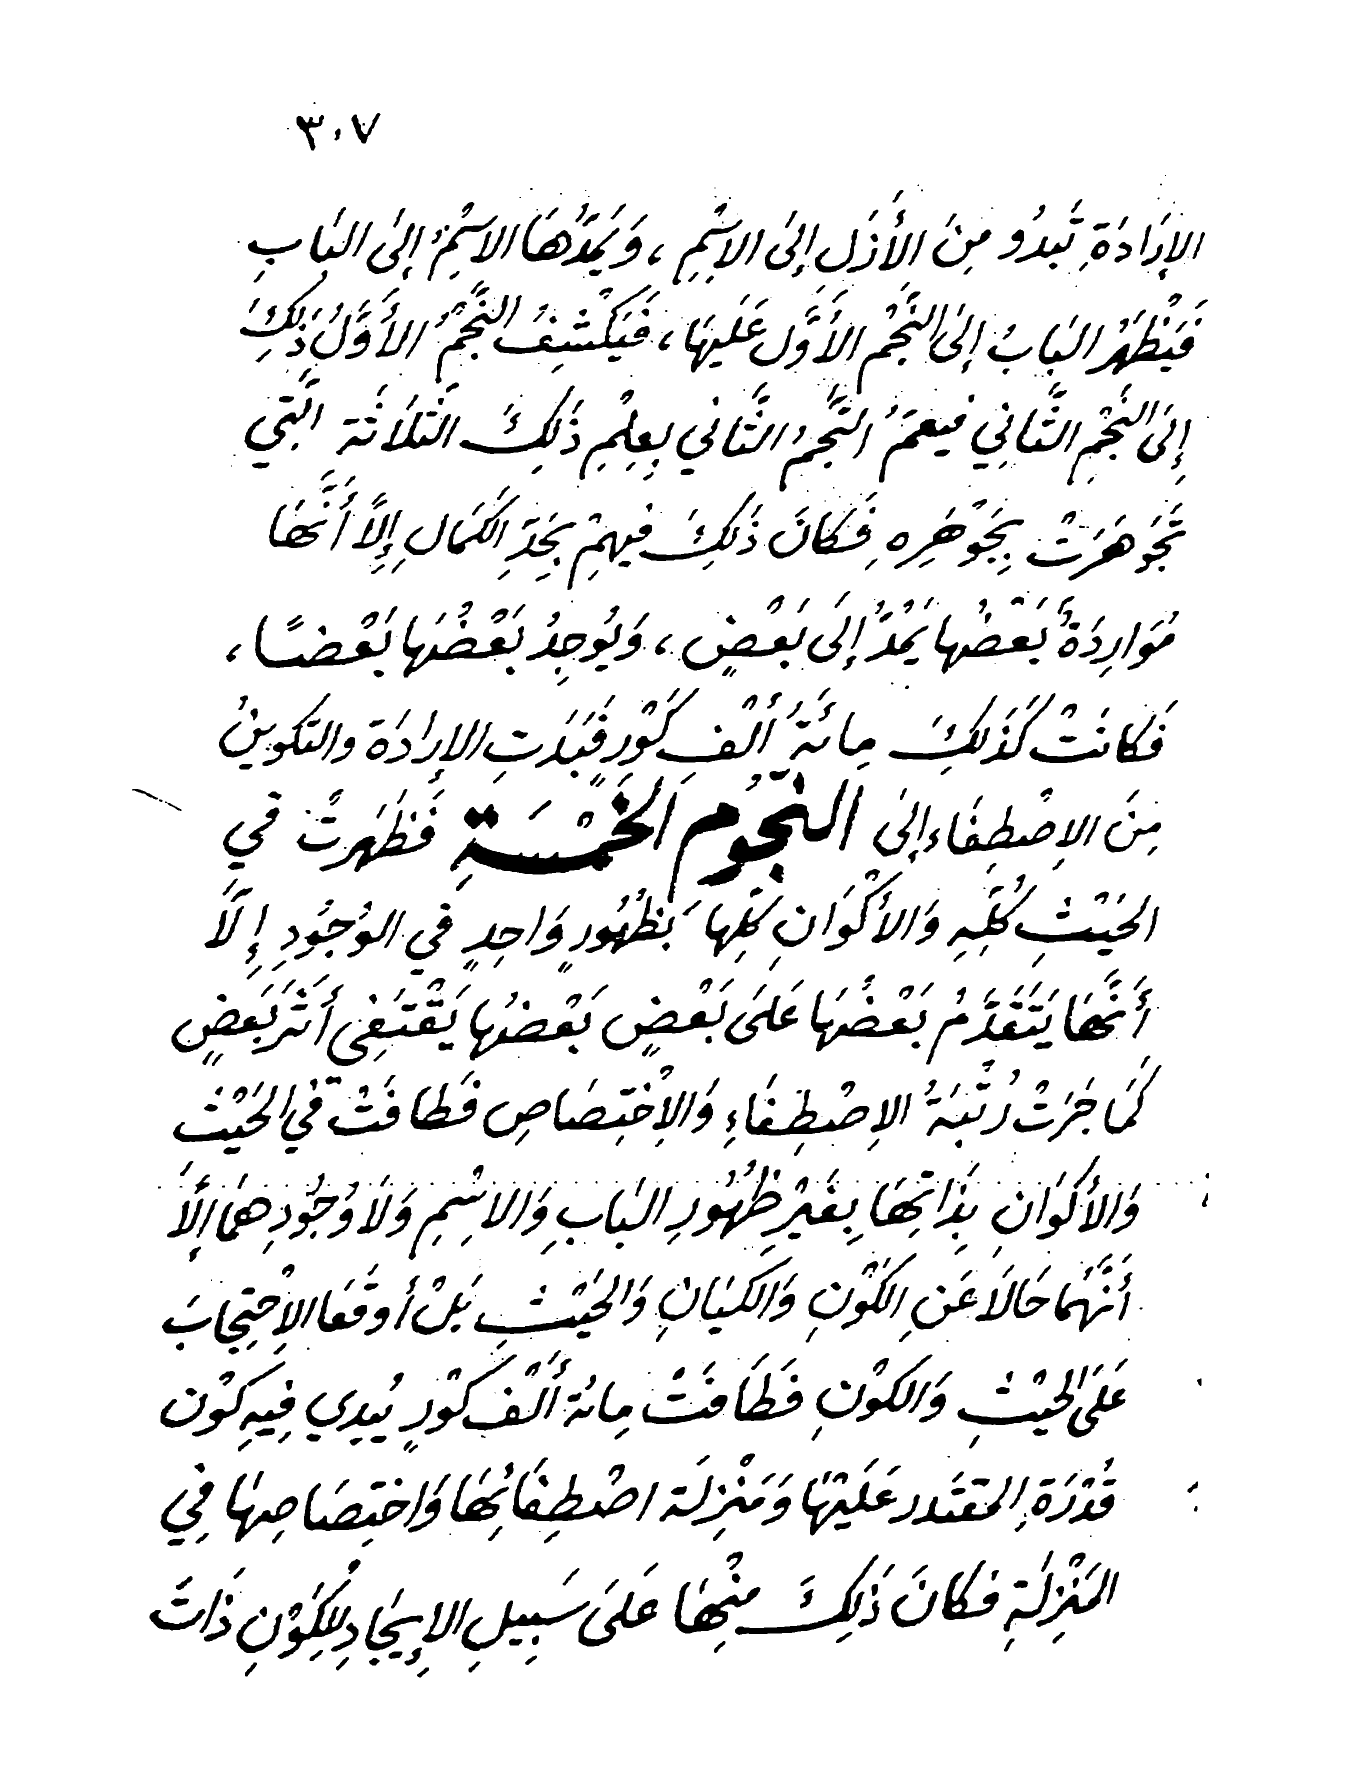 ٣٠٧
الإِرَادَةِ تَبدُو مِنَ الأَزَلِ إِلىٰ الاِسْمِ ، وَيَمَدُّهَا الاسِمُ إِلىٰ البٰابِ
فَيَظْهَرُ البٰابُ إِلىَ النَّجْمِ الأَوَّلِ عَلَيهَا ، فَيَكْشِفُ النَّجْمُ الأَوَّلُ ذَلِكَ
إِلىَ النَّجْمِ الثَّانِي فيعمَ النَّجمُ الثَّاني بِعِلْمِ ذَلِكَ الثَّلاَثَة الَّتِي
تَجَوهَرَتْ بِجَوْهَرِهِ فَكَانَ ذَلِكَ فيهِمْ بِحَدِّ الكَمَالِ إِلاَّ أَنَّهَا
مُوَارِدَةٌ بَعْضُهَا يَمُدُّ إِلَى بَعْضٍ ، وَيُوجِدُ بَعْضُهَا بَعْضًا ،
فَكَانَتْ كَذَلِكَ مِائَةُ أَلْفِ كَوْرٍ فَبَدَتِ الإِرادَة والتكوينُ
مِنَ الاِصْطِفَاء إِلىٰ النُّجُوم الخَمْسَةِ فَظَهَرتْ في
الحَيْثِ كُلِّهِ وَالأكْوَانِ كُلِّهَا بِظُهُورٍ وَاحِدٍ في الوُجُودِ إِلاَّ
أَنَّهَا يَتَقَدَّمُ بَعْضُهَا عَلىَ بَعْضٍ بَعْضُهَا يَقْتَفِي أَثَرَ بَعضٍ
كَمَا جَرَتْ رُتْبَةُ الاِصْطِفَاءِ وَالاِخْتِصَاصِ فَطافَتْ في الحَيْثِ
وَالأَكْوَانِ بِذَاتِهَا بِغَيْرِ ظُهُورِ البٰابِ وَالاسْمِ وَلاَ وُجُودِهِمَا إلَّا
أَنَّهُمَا حَالاَ عَنِ الكَوْنِ وَالكيَانِ وَالحَيْثِ بَلْ أوقَعَا الاِحْتِجابَ
عَلَى الحَيْثِ وَالكوْنِ فَطَافَتْ مِائة أَلْفَ كَوْرٍ يُبدِي فِيهِ كَوْن
قُدْرَةِ المقتَدر عَلَيْهَا وَمَنْزِلَة اصْطِفَائِهَا وَاختِصَاصِهَا فِي
المَنْزِلَةِ فكانَ ذَلِكَ مِنْهَا عَلىَ سَبِيلِ الإِيجَادِ لِلكَوْنِ ذَاتَ